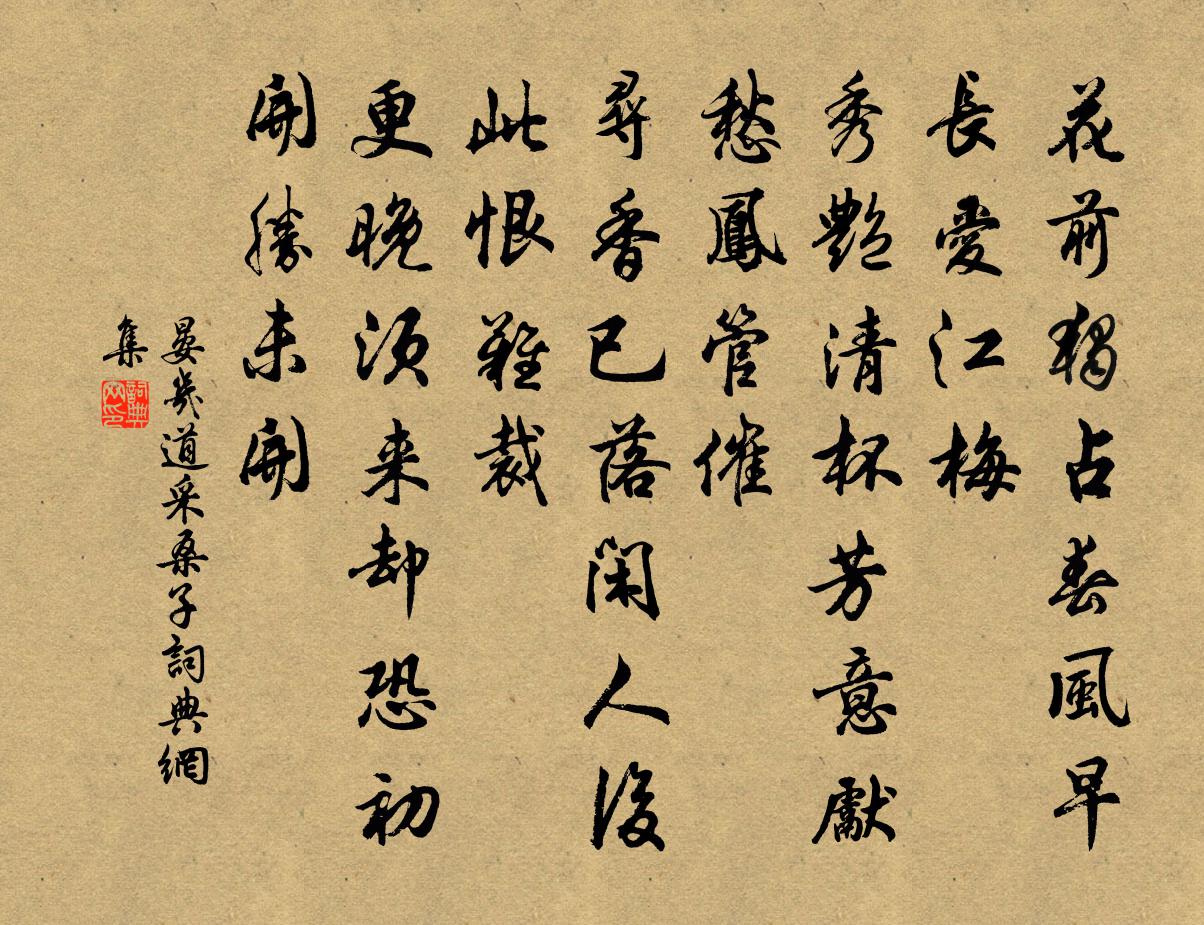 花前獨占春風早
長愛江梅
秀艷清杯芳意獻
愁鳳管催
尋香已落閑人後
此恨難裁
更晚須来却恐初
開勝未開
晏幾道采桑子詞典網
集
詞典網印